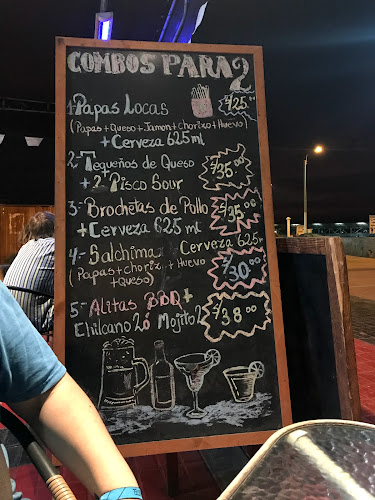 COMBOS PARA 2
1-Papas Locas S/25.00
(Papas+Queso+Jamon+Chorizo+Huevo)
+Cerveza 625ml
2-Tequeños de Queso
+2 Pisco Sour S/35.00
3-Brochetas de Pollo S/35.00
+Cerveza 625 ml
4-Salchimax Cerveza 625
(Papas+Choriz+Huevo S/30.00
+Queso)
5-Alitas BBQ+
Chilcano 2 ó Mojito 2 S/38.00